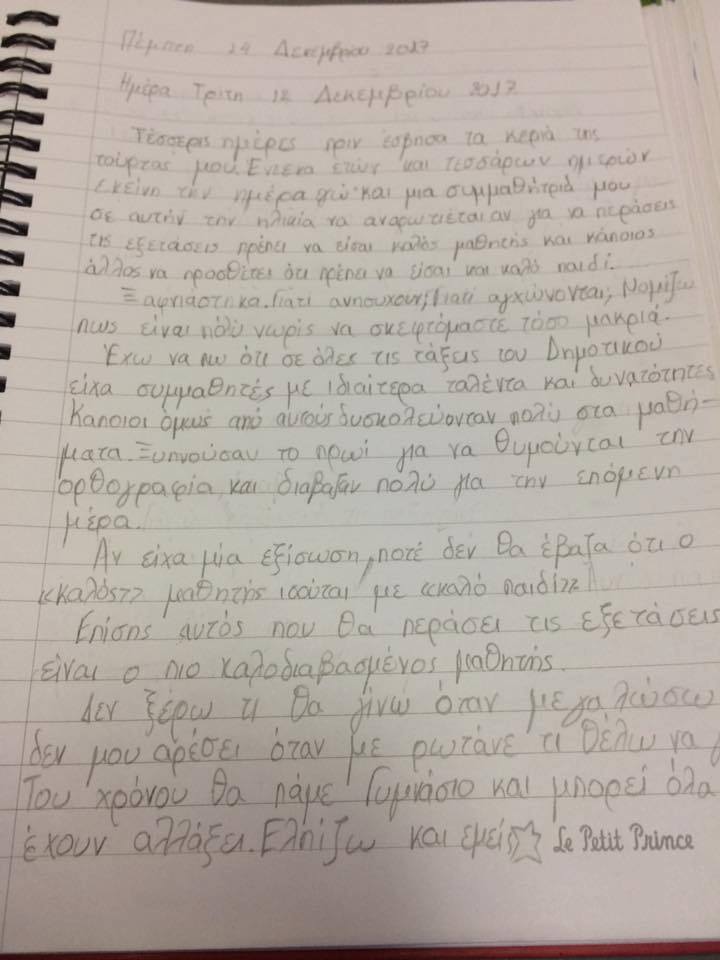 Πέμπτη 14 Δεκεμβρίου 2017
Ημέρα Τρίτη 12 Δεκεμβρίου 2017
Τέσσερις ημέρες πριν έσβησα τα κεριά της
τούρτας μου. Έντεκα ετών και τεσσάρων ημερών
Εκείνη την ημέρα και μια συμμαθήτριά μου
σε αυτήν την ηλικία να αναρωτιέται αν για να περάσεις
τις εξετάσεις πρέπει να είσαι καλός μαθητής και κάποιος
άλλος να προσθέτει ότι πρέπει να είσαι και καλό παιδί.
Ξαφνιάστηκα. Γιατί ανησυχούν; Γιατί αγχώνονται; Νομίζω
πως είναι πολύ νωρίς να σκεφτόμαστε τόσο μακριά.
Έχω να πω ότι σε όλες τις τάξεις του Δημοτικού
είχα συμμαθητές με ιδιαίτερα ταλέντα και δυνατότητες
Κάποιοι όμως από αυτούς δυσκολεύονταν πολύ στα μαθή-
ματα. Ξυπνούσαν το πρωί για να θυμούνται την
ορθογραφία και διάβαζαν πολύ για την επόμενη
μέρα.
Αν είχα μία εξίσωση, ποτέ δεν θα έβαζα ότι ο
<<καλός>> μαθητής ισούται με <<καλό παιδί>>
Επίσης αυτός που θα περάσει τις εξετάσεις
είναι ο πιο καλοδιαβασμένος μαθητής.
Δεν ξέρω τι θα γίνω όταν μεγαλώσω
δεν μου αρέσει όταν με ρωτάνε τι θέλω να
Του χρόνου θα πάμε Γυμνάσιο και μπορεί όλα
έχουν αλλάξει. Ελπίζω και εμείς Le Petit Prince